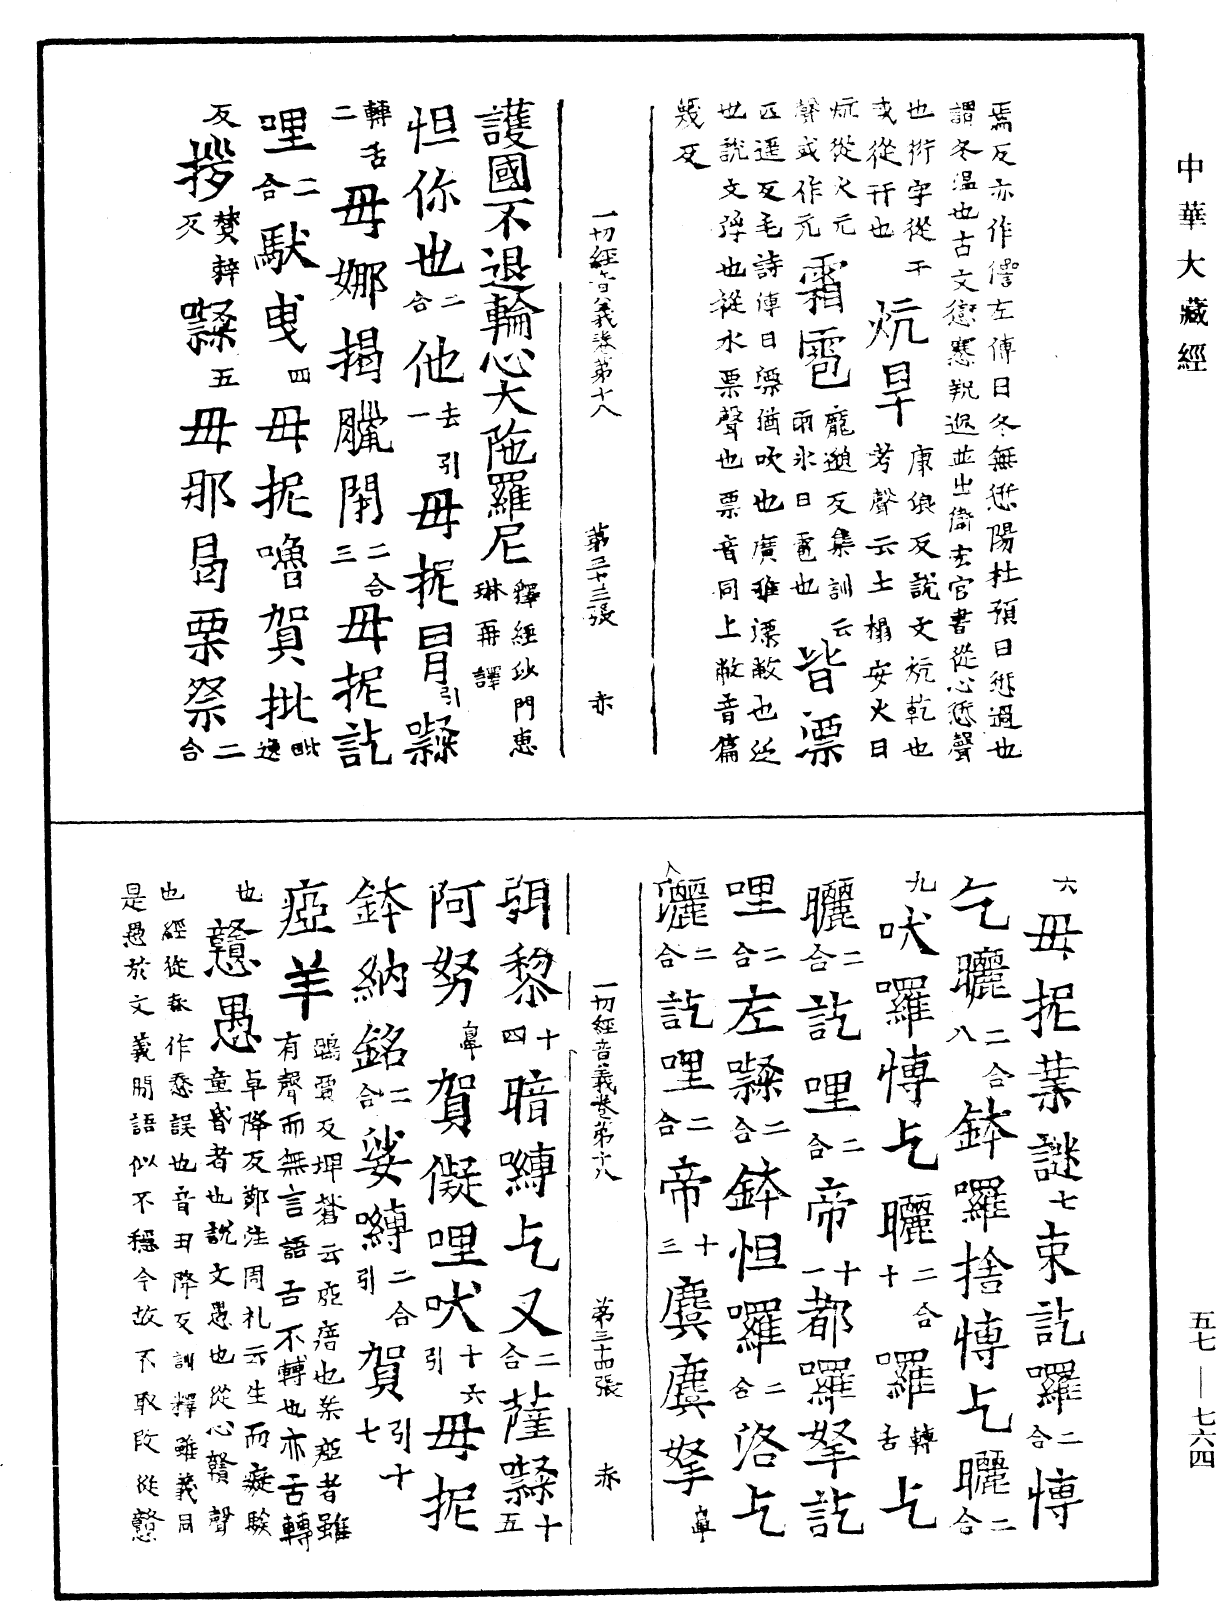 中華大藏經
焉反亦作𠍴左傳曰冬無愆陽杜預曰愆過也
謂冬溫也古文愆𠎝𧗸遃並出衞宏官書從心愆聲
也衍字從干
或從幵也
炕旱
康浪反說文炕乾也
考聲云土榻安火曰
炕從火亢
聲或作亢
霜雹
龐邈反集訓云
雨氷曰雹也
皆漂
匹遥反毛詩傳曰漂猶吹也廣雅漂敝也泛
也說文浮也從水票聲也票音同上敝音篇
蔑反
一切經音義卷第十八
第三十三張
赤
護國不退輪心大陁羅尼
釋經沙門惠
琳再譯
怛你也二合他去引一毋抳冐引嚛
轉舌二毋娜揭臘閇二合三毋抳訖
哩二合馱曳四毋抳嚕賀批毗逸
反拶贊辢反嚛五毋那曷栗祭二合
六毋抳葉謎七束訖囉二合愽
乞曬二合八鉢囉捨愽乞曬二合
九吠囉愽乞曬二合十囉轉舌乞
曬二合訖哩二合帝十一都囉拏訖
哩二合左嚛二合鉢怛囉二合洛乞
曬二合訖哩二合帝十三虞虞拏鼻
一切經音義卷第十八
第三十四張
赤
弭黎十四暗嚩乞叉二合薩嚛十五
阿努鼻賀儗哩吠引十六毋抳
鉢納銘二合娑嚩二合引賀引十七
瘂羊
鵶賈反埤蒼云瘂瘖也案瘂者雖
有聲而無言語舌不轉也亦舌轉
也
戇愚
卓降反鄭注周礼云生而癡騃
童昏者也說文愚也從心贛聲
也經從春作惷誤也音丑降反訓釋雖義同
是愚於文義閒語似不穩今故不取改從戇
五七—七六四